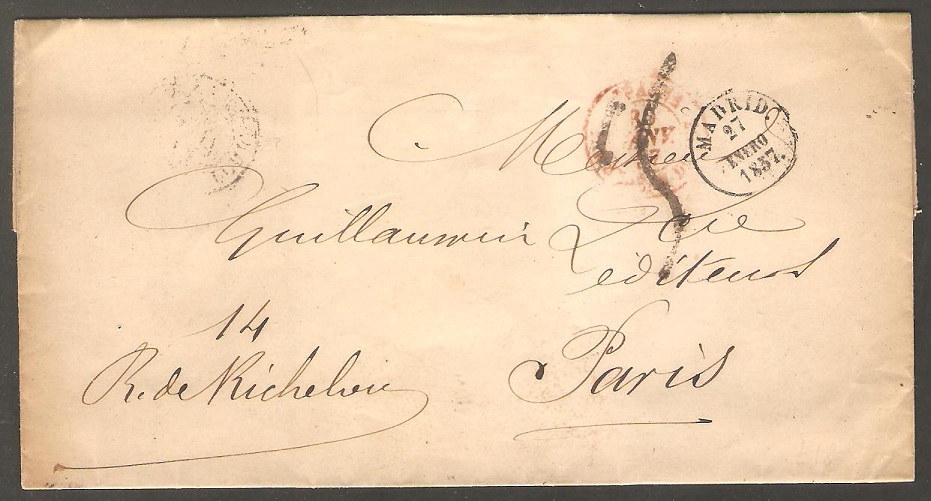 MADRID.
27
ENERO
1857.
Guillaumin & Cie
éditeurs
14
R. de Richelieu
Paris